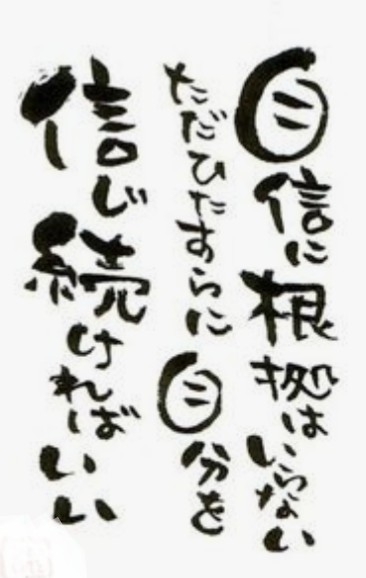 自信に根拠はいらない
ただひたすらに自分を
信じ続ければいい